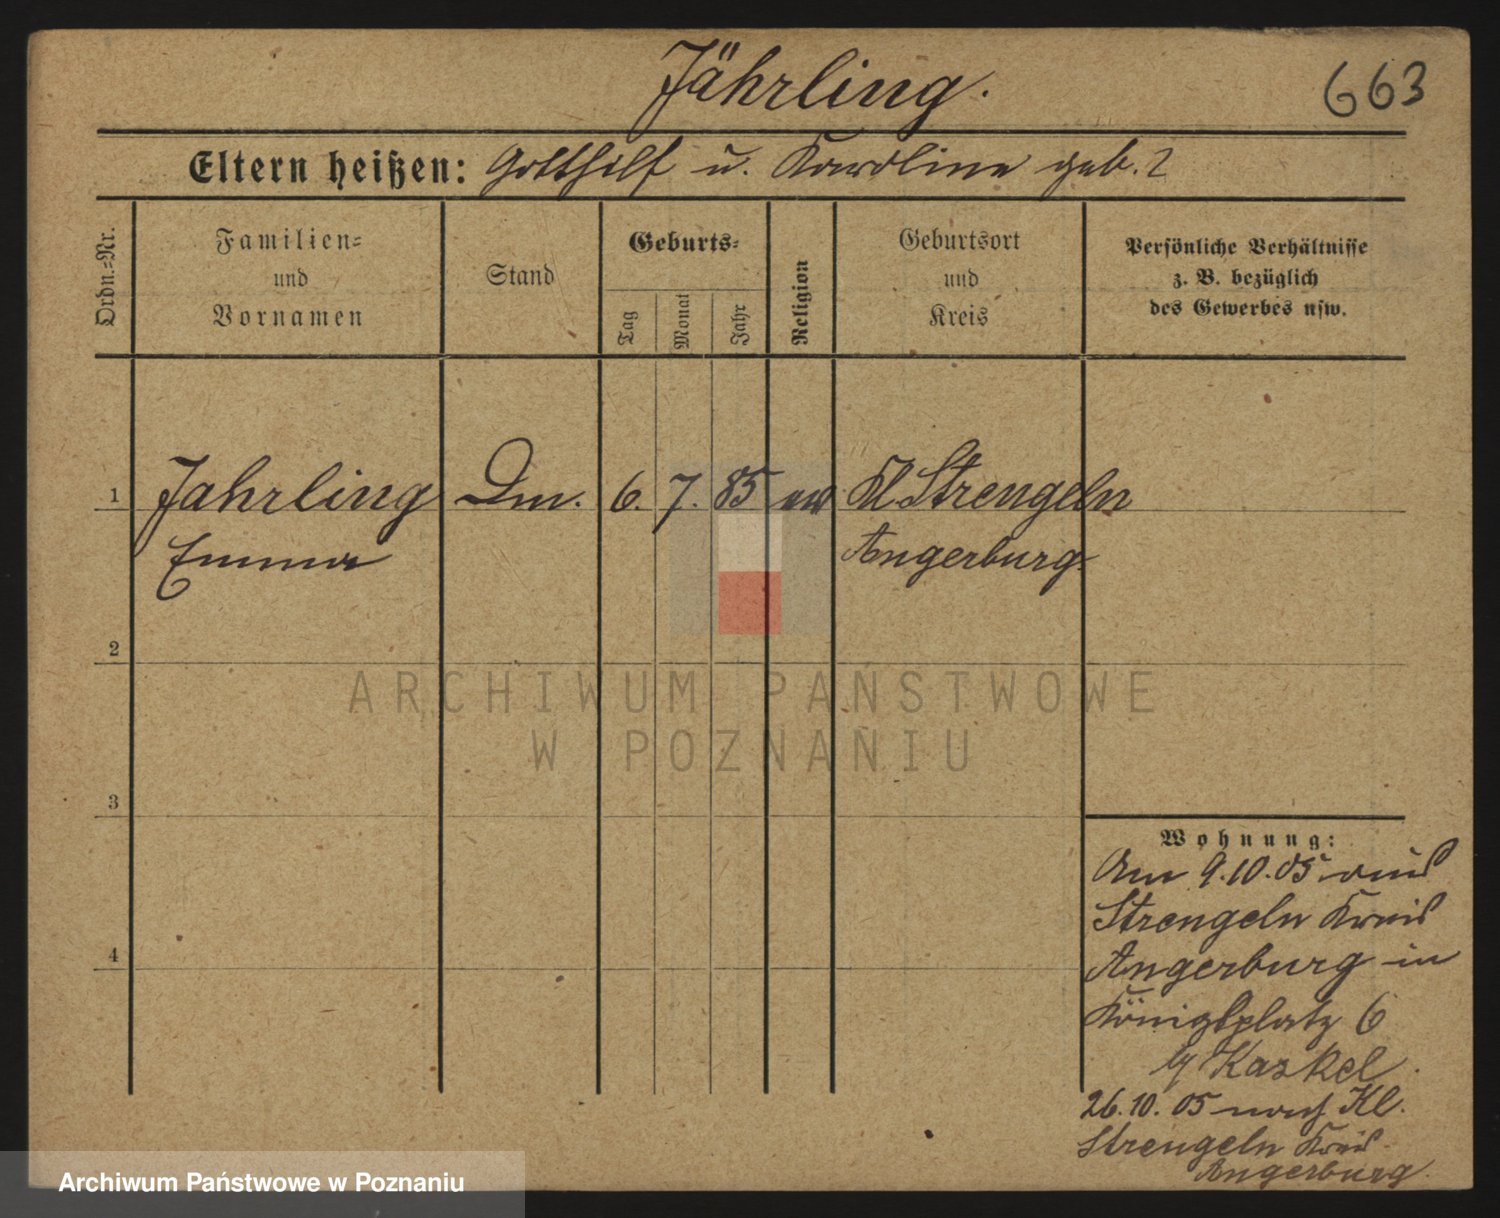 Jährling.
663
Eltern heißen: Gotthilf u. Karoline geb. ?
Ordn.-Nr.
Familien-
und
Vornamen
Stand
Geburts-
Tag
Monat
Jahr
Religion
Geburtsort
und
Kreis
Persönliche Verhältnisse
z. B. bezüglich
des Gewerbes usw.
1 Jahrling Dm. 6. 7. 85 ev Kl Strengeln
Emma Angerburg.
2
3
4
ARCHIWUM PAŃSTWOWE
W POZNANIU
Wohnung:
Am 9.10.05 aus
Strengeln Kreis
Angerburg in
Königsplatz 6
Kaskel.
26.10.05 nach Kl.
Strengeln Kreis
Angerburg.
Archiwum Państwowe w Poznaniu